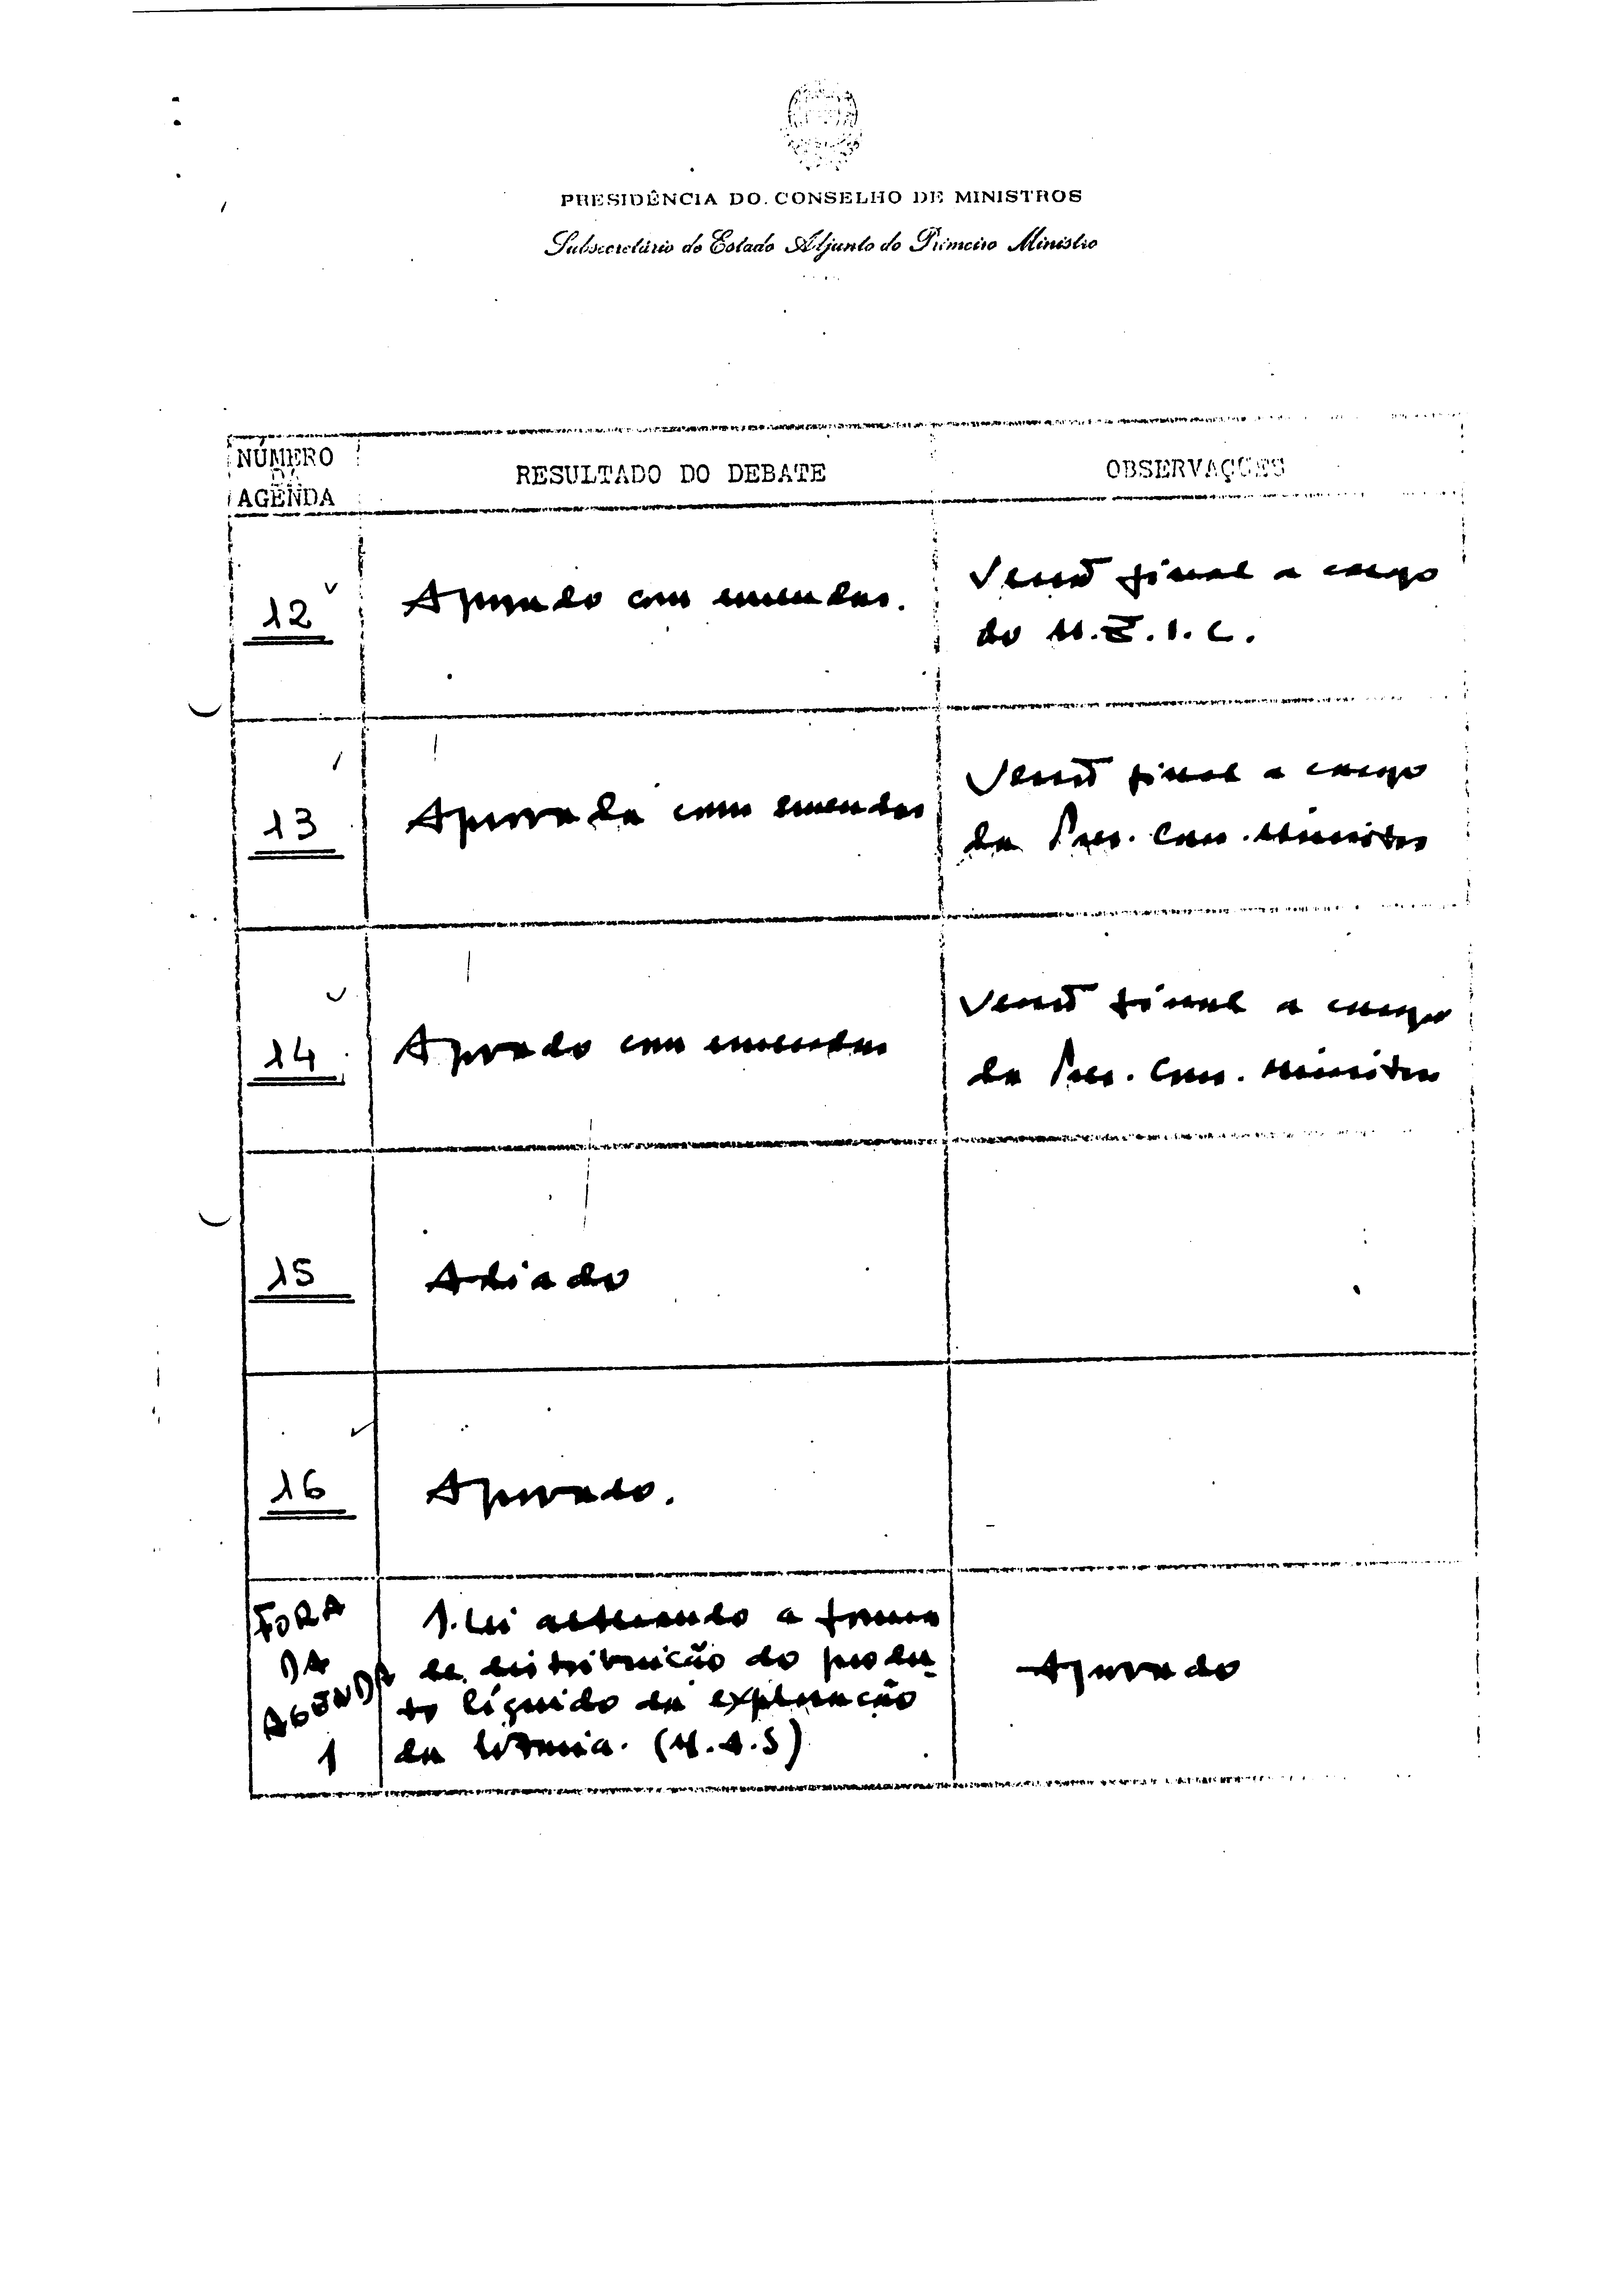 PRESIDÊNCIA DO CONSELHO DE MINISTROS
Subsecretário de Estado Adjunto do Primeiro Ministro
NÚMERO
DA
AGENDA
RESULTADO DO DEBATE
OBSERVAÇÕES
12
Aprovado com emendas.
Versão final a cargo
do M.E.I.C.
13
Aprovada com emendas
Versão final a cargo
da Pres. Cons. Ministros
14
Aprovado com emendas
Versão final a cargo
da Pres. Cons. Ministros
15
Adiado
16
Aprovado.
FORA
DA
AGENDA
1
1. Lei alterando a forma
de distribuição do produ-
to líquido da exploração
da lotaria. (M.A.S)
Aprovado